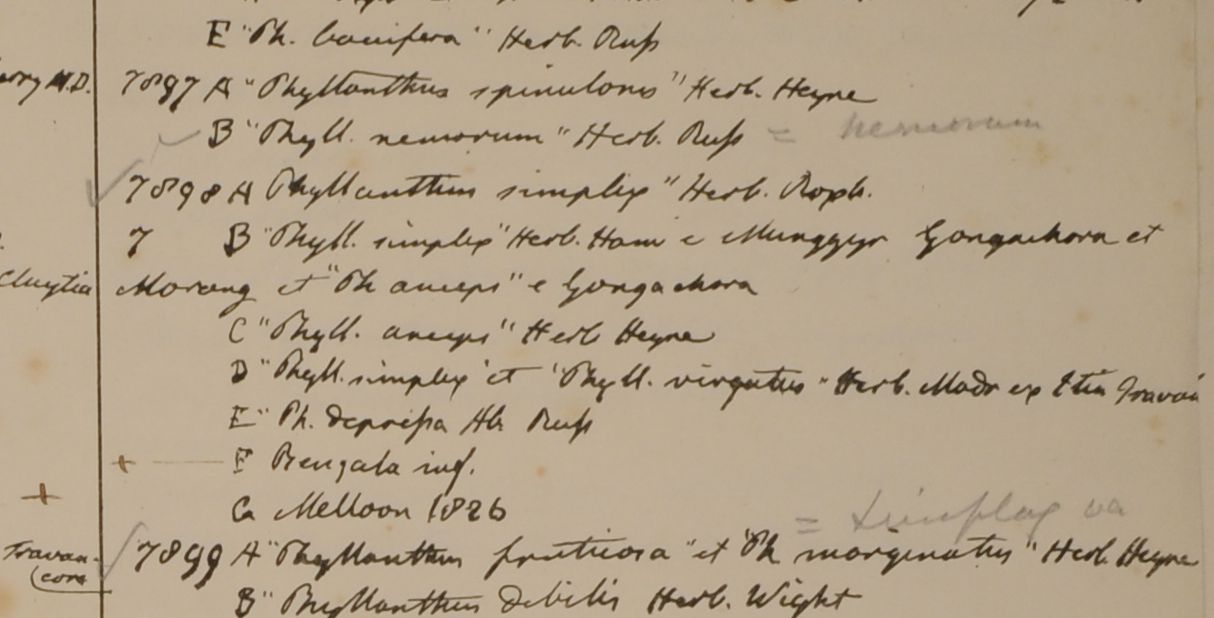 E "Ph. bacifera" Herb. Russ
7897 A "Phyllanthus spinulosus" Herb. Heyne
B "Phyll. nemorum" Herb. Russ = nemorum
7898 A Phyllanthus simplex" Herb. Roxb.
7 B "Phyll. simplex" Herb. Ham e Mungger Gongachora et
Cluytia Morang et "Ph anceps" e Gongachora
C "Phyll. anceps" Herb Heyne
D "Phyll. simplex" et "Phyll. virgatus" Herb. Madr ex
E "Ph. depressa Hb Russ
+ F Bengala inf.
+ G Melloon 1826
= simplex va
Travan- 7899 A "Phyllanthus fruticosa" et "Ph marginatus" Herb. Heyne
core
B "Phyllanthus debilis Herb. Wight